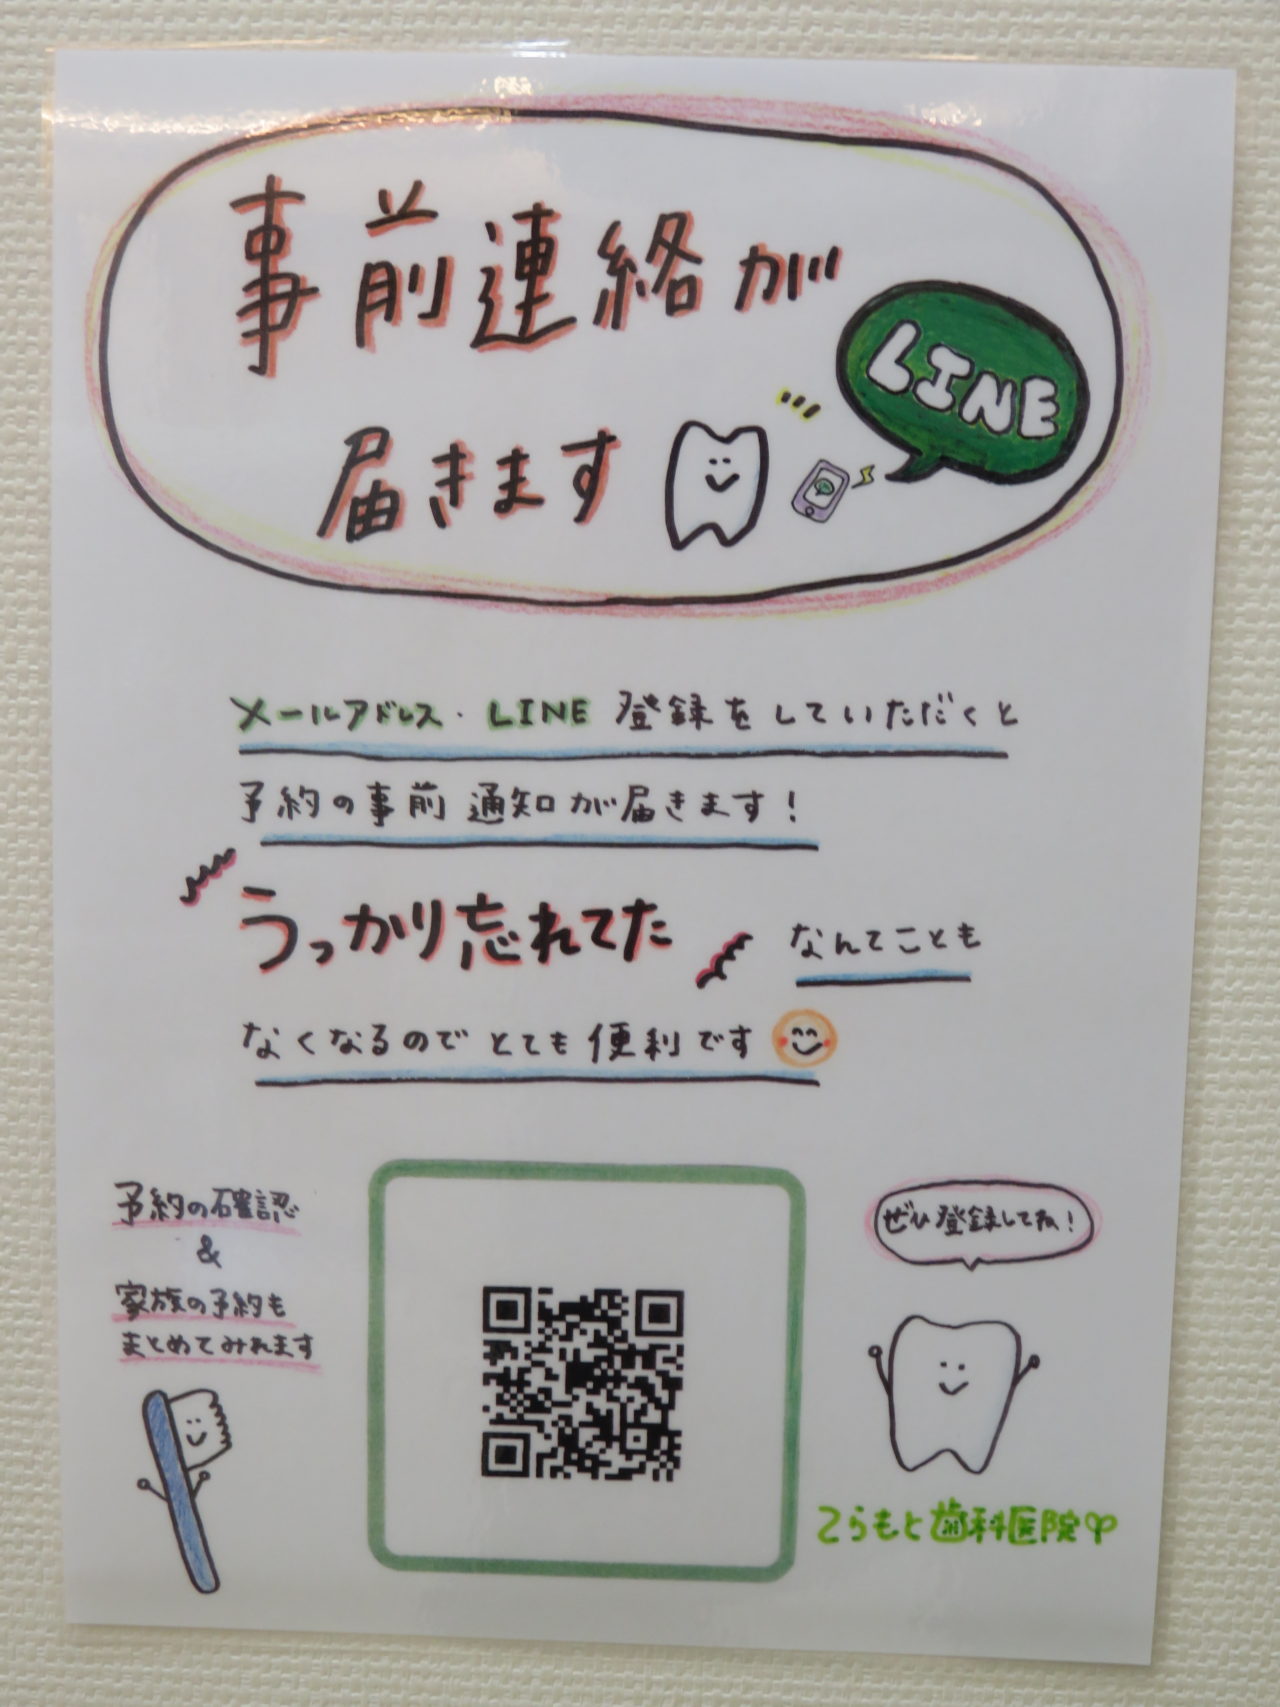 事前連絡が
LINE
届きます
メールアドレス・LINE 登録をしていただくと
予約の事前通知が届きます！
うっかり忘れてた なんてことも
なくなるのでとても便利です
予約の確認
&
家族の予約も
まとめてみれます
ぜひ登録してね！
てらもと歯科医院